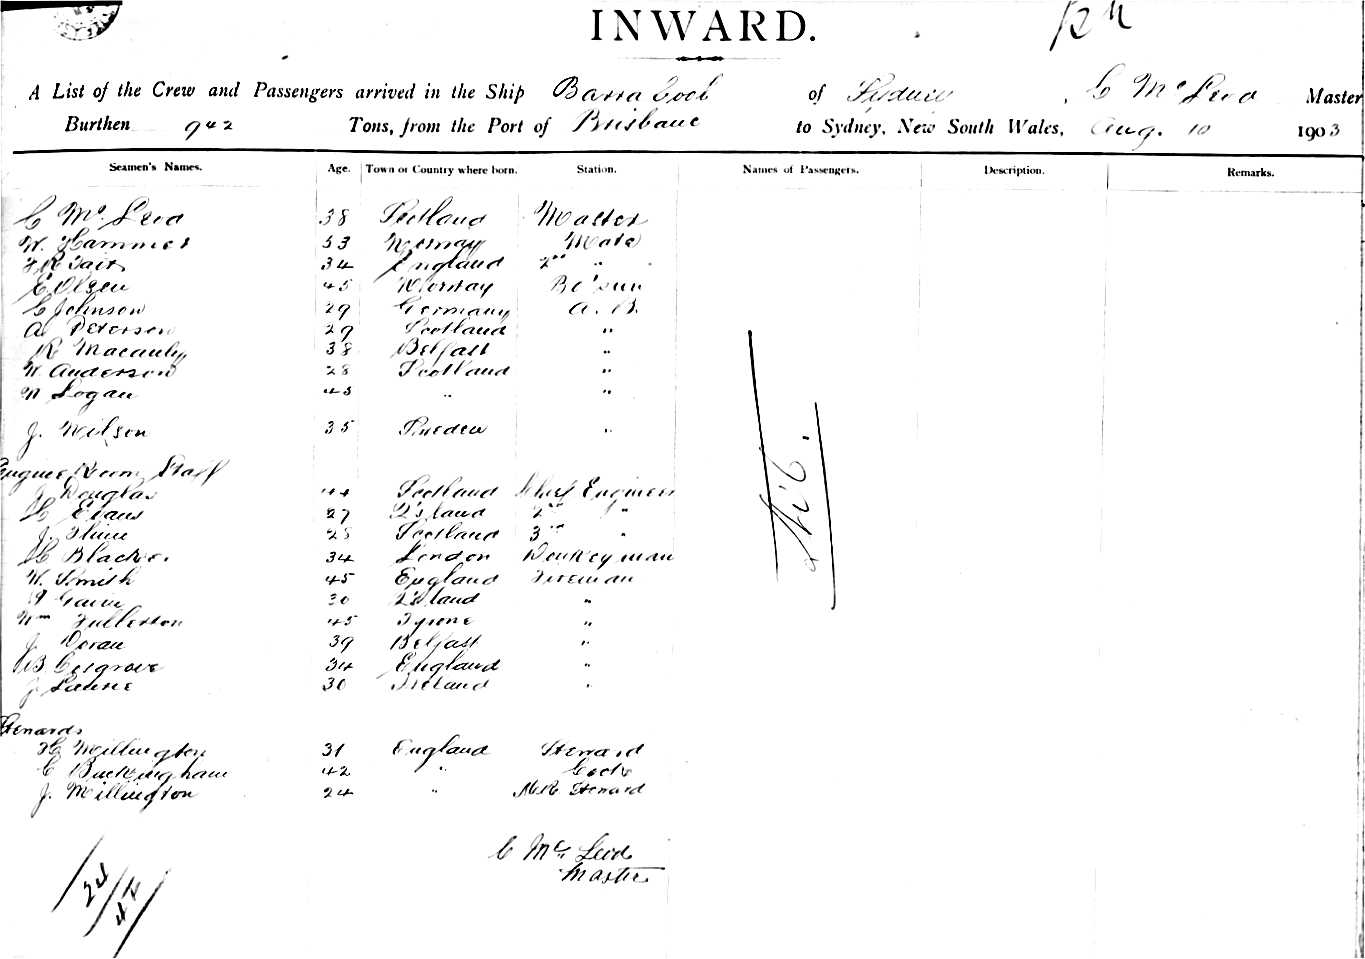 INWARD.
A List of the Crew and Passengers arrived in the Ship Barra bool of Sydney, C McLeod Master
Burthen 942 Tons, from the Port of Brisbane to Sydney, New South Wales, Aug. 10 1903
Seamen's Names. Age. Town or Country where born. Station. Names of Passengers. Description. Remarks.
C McLeod 38 Scotland Master
W. Hammer 53 Norway Mate
R Tait 34 England 2nd "
E Olsen 45 Norway Bo'sun
C Johnson 29 Germany A.B.
A Peterson 29 Scotland "
R Macauley 38 Belfast "
W Anderson 28 Scotland "
Logan 43 " "
J. Neilson 35 Sweden "
Engine Room Staff
J Douglas 44 Scotland Chief Engineer
Evans 27 2nd "
J. 28 Scotland 3rd "
34 London Donkeyman
W. Smith 45 England Fireman
30 "
Wm Fullerton 45 Tyrone "
J Doran 39 Belfast "
B Cosgrove 34 England "
J 30 Ireland "
Stewards
H Millington 31 England Steward
C Buckingham 42 " Cook
J. Millington 24 " Steward
C McLeod
Master
24/42